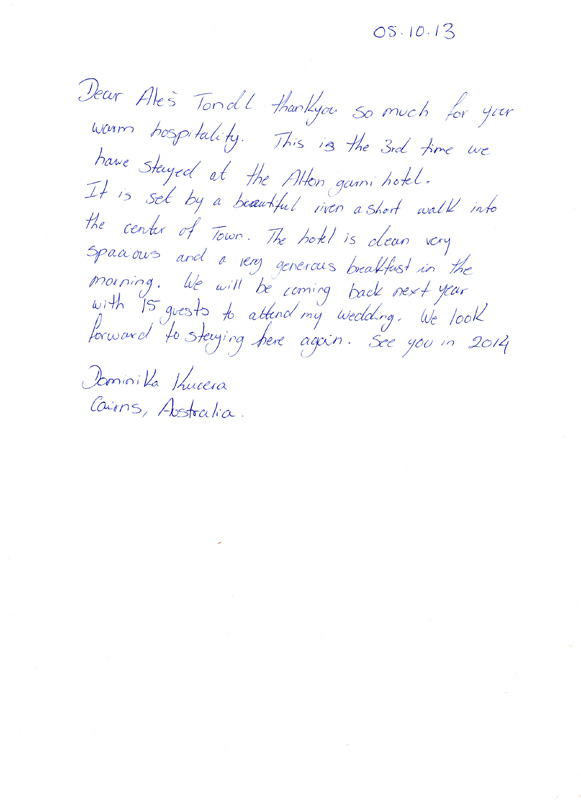 05.10.13
Dear Aleš Tondl thankyou so much for your
warm hospitality. This is the 3rd time we
have stayed at the Alton garni hotel.
It is set by a beautiful river a short walk into
the center of Town. The hotel is clean very
spacious and a very generous breakfast in the
morning. We will be coming back next year
with 15 guests to attend my wedding. We look
forward to staying here again. See you in 2014
Dominika Kucera
Cairns, Australia.